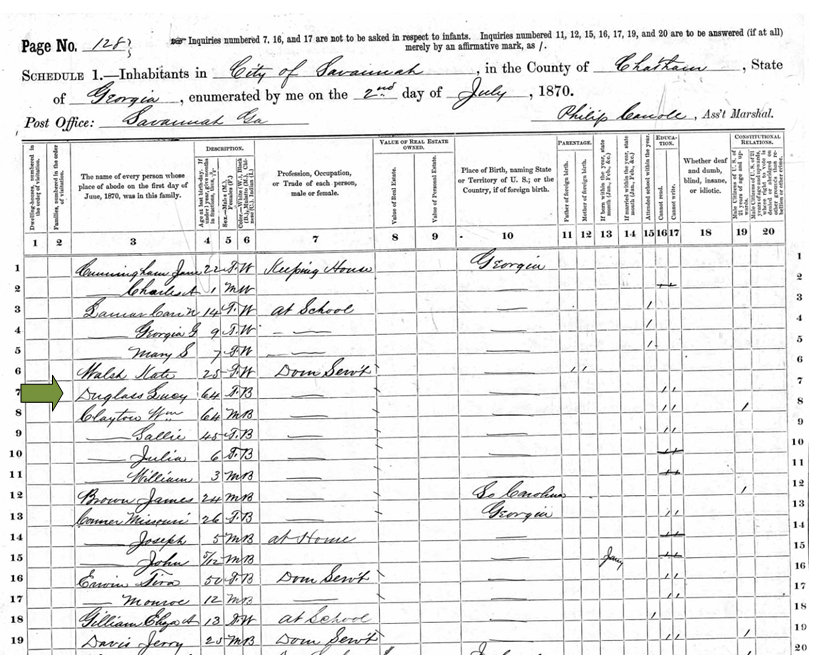 Page No. 128}
Inquiries numbered 7, 16, and 17 are not to be asked in respect to infants. Inquiries numbered 11, 12, 15, 16, 17, 19, and 20 are to be answered (if at all)
merely by an affirmative mark, as /.
SCHEDULE 1.—Inhabitants in City of Savannah, in the County of Chatham, State
of Georgia, enumerated by me on the 2nd day of July, 1870.
Post Office: Savannah Ga
Philip, Ass't Marshal.
DESCRIPTION. VALUE OF REAL ESTATE OWNED. PARENTAGE. EDUCATION. CONSTITUTIONAL RELATIONS.
Dwelling-houses, numbered in the order of visitation.
Families, numbered in the order of visitation.
The name of every person whose place of abode on the first day of June, 1870, was in this family.
Age at last birth-day. If under 1 year, give months in fractions, thus,
Sex.—Males (M.), Females (F.)
Profession, Occupation, or Trade of each person, male or female.
Value of Real Estate.
Value of Personal Estate.
Place of Birth, naming State or Territory of U. S.; or the Country, if of foreign birth.
Father of foreign birth.
Mother of foreign birth.
If born within the year, state month (Jan., Feb., &c.)
If married within the year, state month (Jan., Feb., &c.)
Attended school within the year.
Cannot read.
Cannot write.
Whether deaf and dumb, blind, insane, or idiotic.
1 2 3 4 5 6 7 8 9 10 11 12 13 14 15 16 17 18 19 20
1 Cunningham Jane 22 F W Keeping House Georgia 1
2 — Charles A 1 M W — 2
3 Lamar Car'n 14 F W at School — / 3
4 — Georgia G 9 F W — — / 4
5 — Mary S 7 F W — — / 5
6 Walsh Kate 25 F W Dom Serv't — / / 6
7 Duglass Lucy 64 F B — — / / 7
8 Clayton Wm 64 M B — — / / / 8
9 — Sallie 45 F B — — / / 9
10 — Julia 6 F B — — 10
11 — William 3 M B — — 11
12 Brown James 24 M B — So Carolina / 12
13 Conner Missouri 26 F B — Georgia / / 13
14 — Joseph 5 M B at Home — 14
15 — John 5/12 M B — — Jany 15
16 Erwin 50 F B Dom Serv't — / / 16
17 — Monroe 12 M B — — / / 17
18 Gilliam Eliza A 13 F W at School — / 18
19 Davis Jerry 25 M B Dom Serv't — / / / 19
20